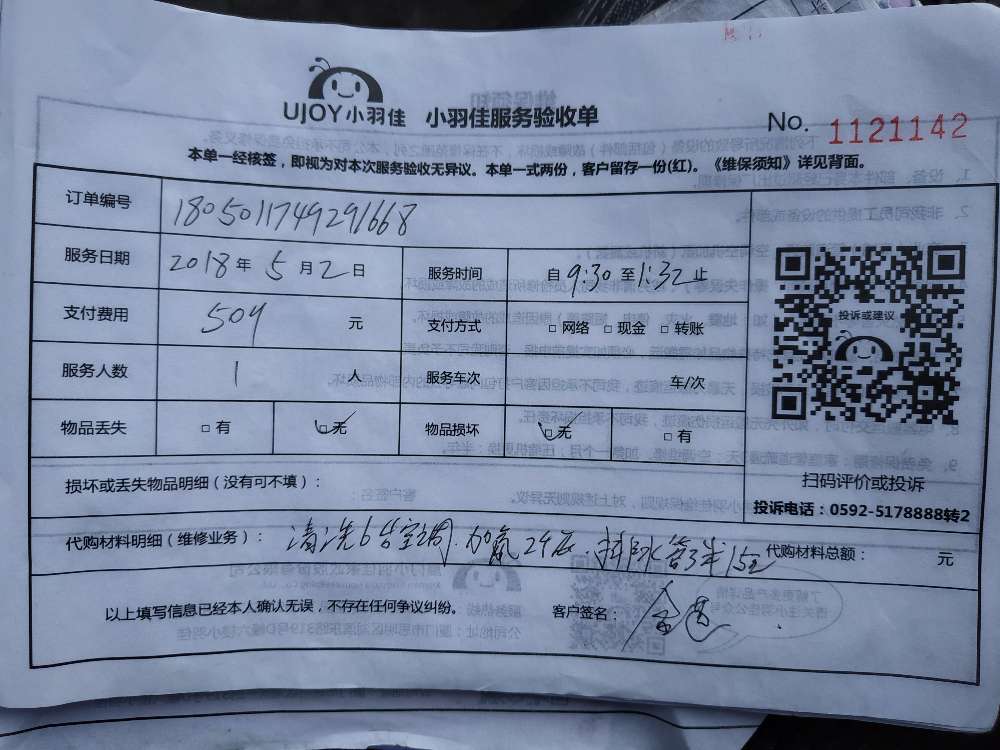 UJOY小羽佳 小羽佳服务验收单 No. 1121142
本单一经核签，即视为对本次服务验收无异议。本单一式两份，客户留存一份(红)。《维保须知》详见背面。
订单编号 1805011749291668
服务日期 2018年5月2日 服务时间 自9:30至1:32止
支付费用 504 元 支付方式 □网络 □现金 □转账
服务人数 1 人 服务车次 车/次
物品丢失 □有 □无 物品损坏 □无 □有
损坏或丢失物品明细（没有可不填）：
投诉或建议
扫码评价或投诉
投诉电话：0592-5178888转2
代购材料明细（维修业务）： 清洗6台空调.加氟 代购材料总额： 元
以上填写信息已经本人确认无误，不存在任何争议纠纷。 客户签名：